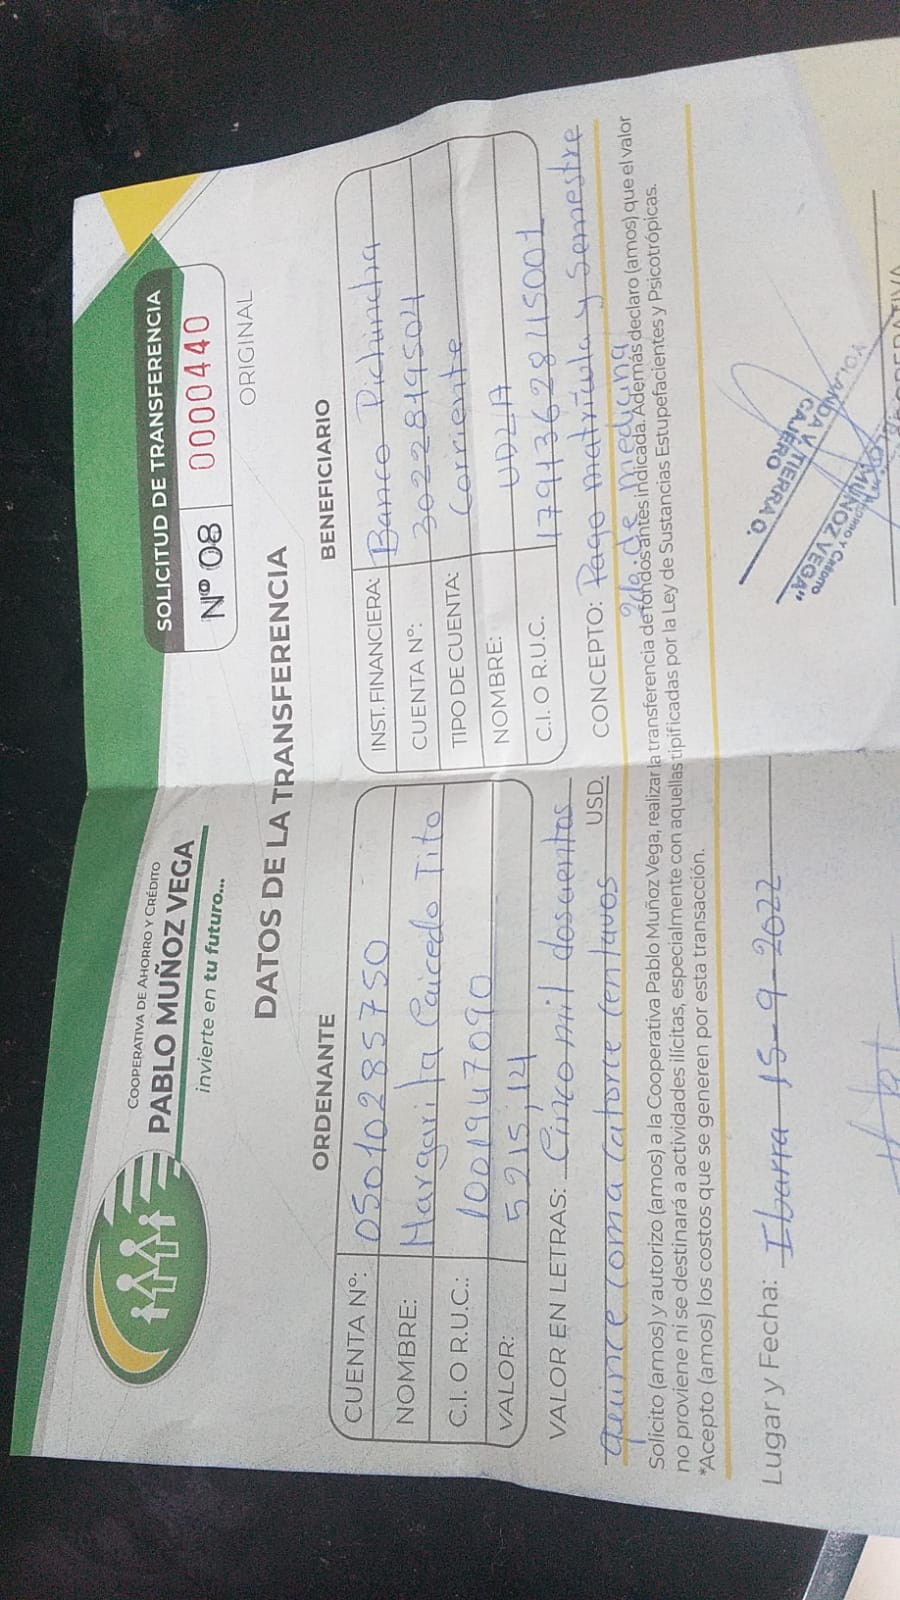 COOPERATIVA DE AHORRO Y CRÉDITO
PABLO MUÑOZ VEGA
invierte en tu futuro...
SOLICITUD DE TRANSFERENCIA
Nº 08 0000440
ORIGINAL
DATOS DE LA TRANSFERENCIA
ORDENANTE
CUENTA Nº: 050102885750
NOMBRE: Margarita Caicedo Tito
C.I. O R.U.C.: 1001947090
VALOR: 5215,14
VALOR EN LETRAS: Cinco mil doscientos
quince coma catorce centavos USD.
BENEFICIARIO
INST. FINANCIERA: Banco Pichincha
CUENTA Nº: 3022819504
TIPO DE CUENTA: Corriente
NOMBRE: UDLA
C.I. O R.U.C. 1791362845001
CONCEPTO: Pago matrícula y Semestre
2do. de medicina
Solicito (amos) y autorizo (amos) a la Cooperativa Pablo Muñoz Vega, realizar la transferencia de fondos antes indicada. Además declaro (amos) que el valor
no proviene ni se destinará a actividades ilícitas, especialmente con aquellas tipificadas por la Ley de Sustancias Estupefacientes y Psicotrópicas.
*Acepto (amos) los costos que se generen por esta transacción.
Lugar y Fecha: Ibarra 15-9-2022
YOLANDA V. TIERRA O.
CAJERO
AHORRO Y CRÉDITO
MUÑOZ VEGA"